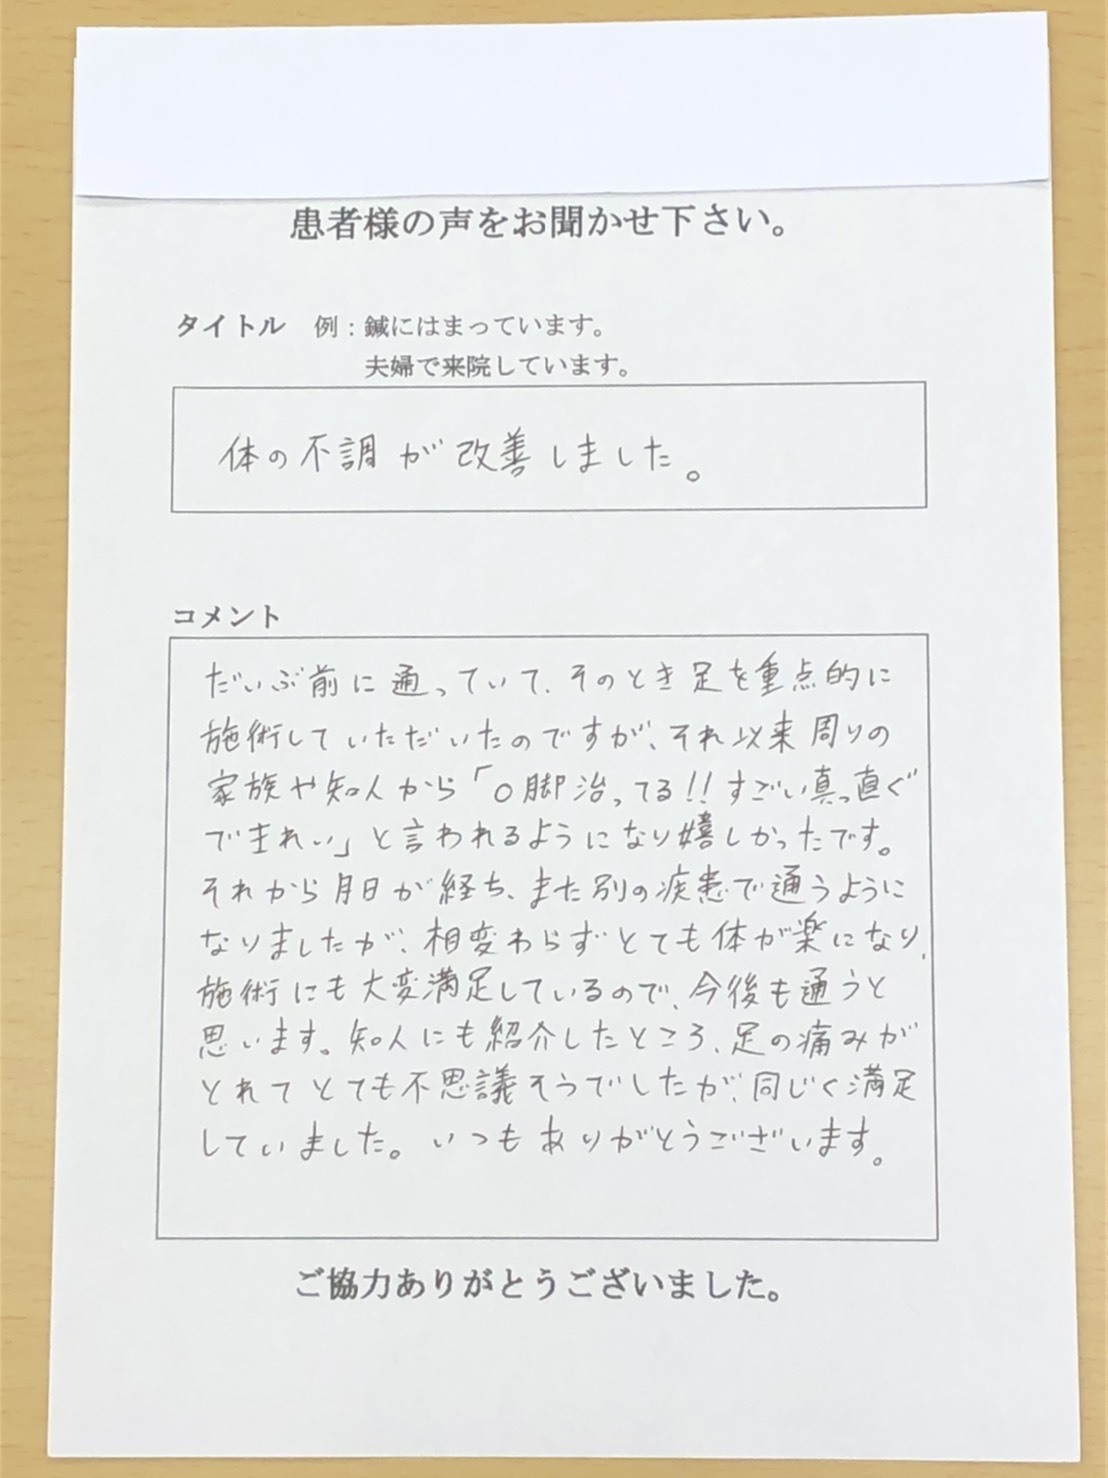 患者様の声をお聞かせ下さい。
タイトル 例：鍼にはまっています。
夫婦で来院しています。
体の不調が改善しました。
コメント
だいぶ前に通っていて、そのとき足を重点的に
施術していただいたのですが、それ以来周りの
家族や知人から「O脚治ってる!!すごい真っ直ぐ
できれい」と言われるようになり嬉しかったです。
それから月日が経ち、また別の疾患で通うように
なりましたが、相変わらずとても体が楽になり、
施術にも大変満足しているので、今後も通うと
思います。知人にも紹介したところ、足の痛みが
とれてとても不思議そうでしたが、同じく満足
していました。いつもありがとうございます。
ご協力ありがとうございました。